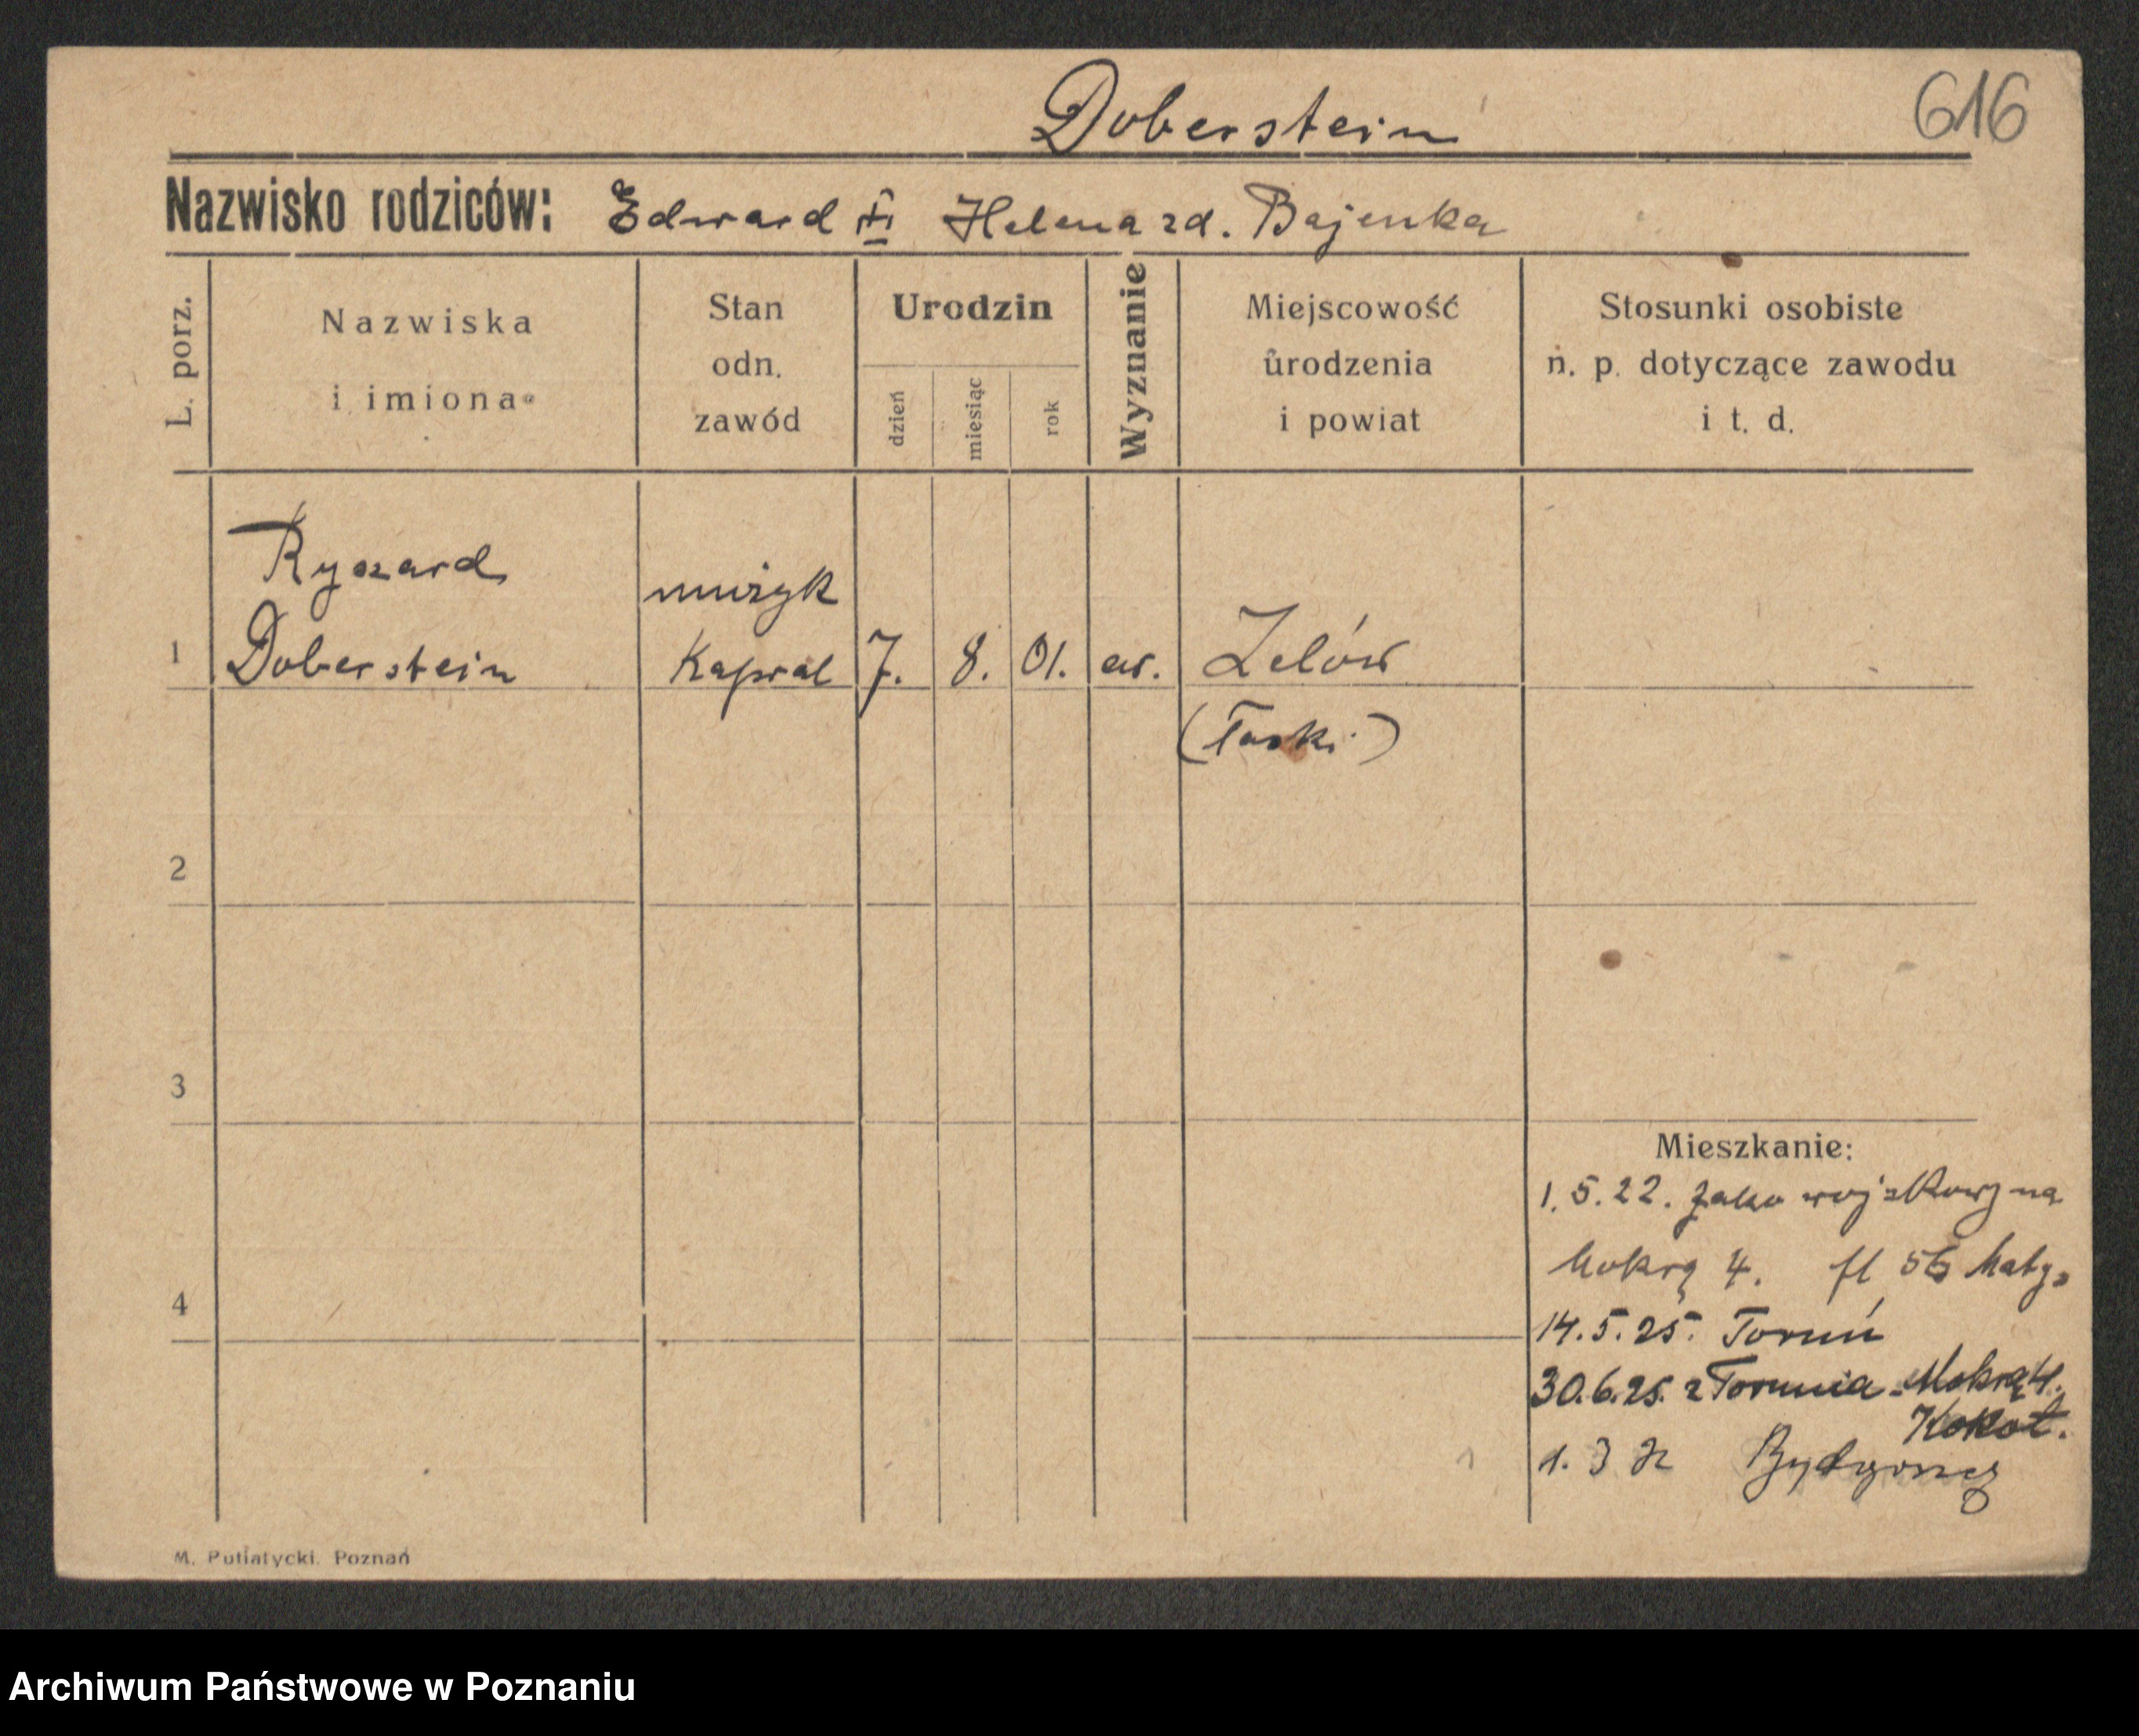 Doberstein 616
Nazwisko rodziców: Edward i Helena zd. Bajenka
L. porz.
Nazwiska
i imiona
Stan
odn.
zawód
Urodzin
dzień
miesiąc
rok
Wyznanie
Miejscowość
urodzenia
i powiat
Stosunki osobiste
n. p. dotyczące zawodu
i t. d.
Ryszard
Doberstein
muzyk
Kapral
1
7. 8. 01. ew. Zelów
(Łaski)
2
3
4
Mieszkanie:
1.5.22. jako wojskowy na
Mokrą 4. 56
14.5.25. Toruń
30.6.25. z Torunia Mokrą 4.
Kokot.
1. 3 Bydgoszcz
M. Putiatycki. Poznań
Archiwum Państwowe w Poznaniu